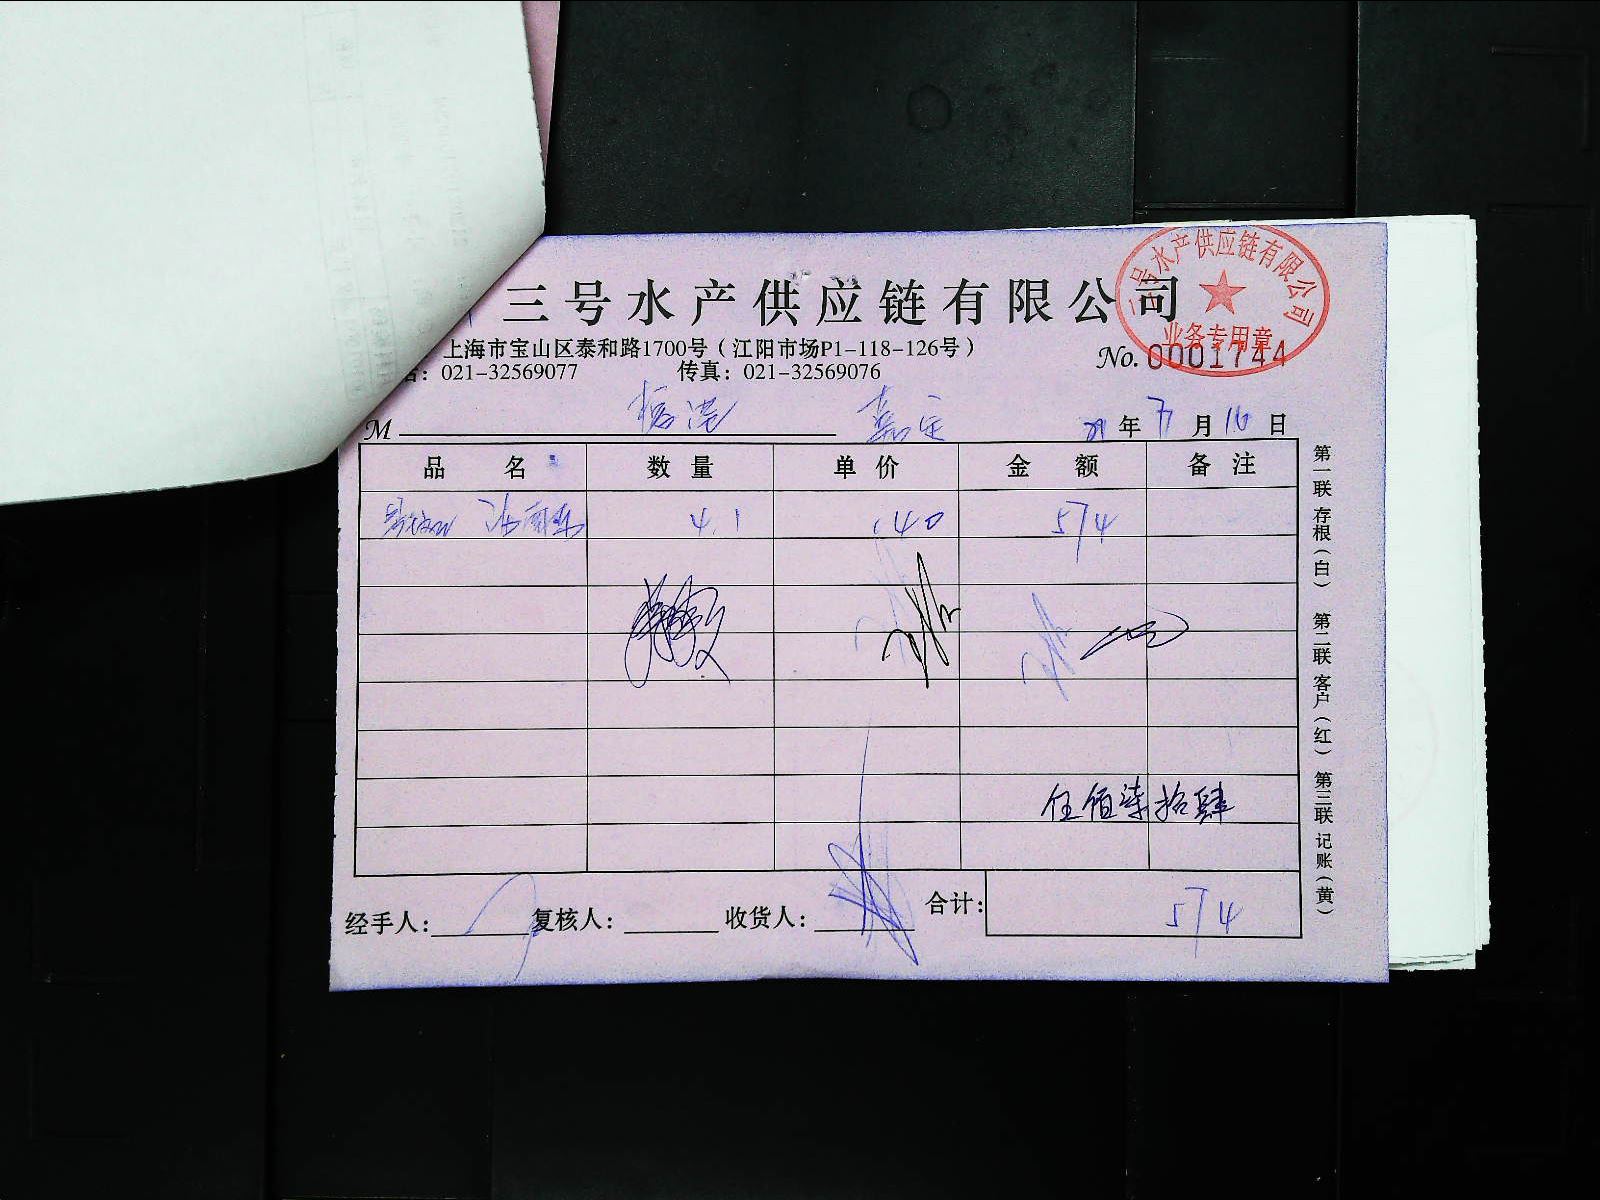 三号水产供应链有限公司
三号水产供应链有限公司
业务专用章
上海市宝山区泰和路1700号（江阳市场P1-118-126号）
No. 0001744
021-32569077 传真：021-32569076
M 嘉定 年 月 16 日
品名 数量 单价 金额 备注
4.1 140 574
伍佰柒拾肆
经手人： 复核人： 收货人： 合计： 574
第一联 存根（白） 第二联 客户（红） 第三联 记账（黄）